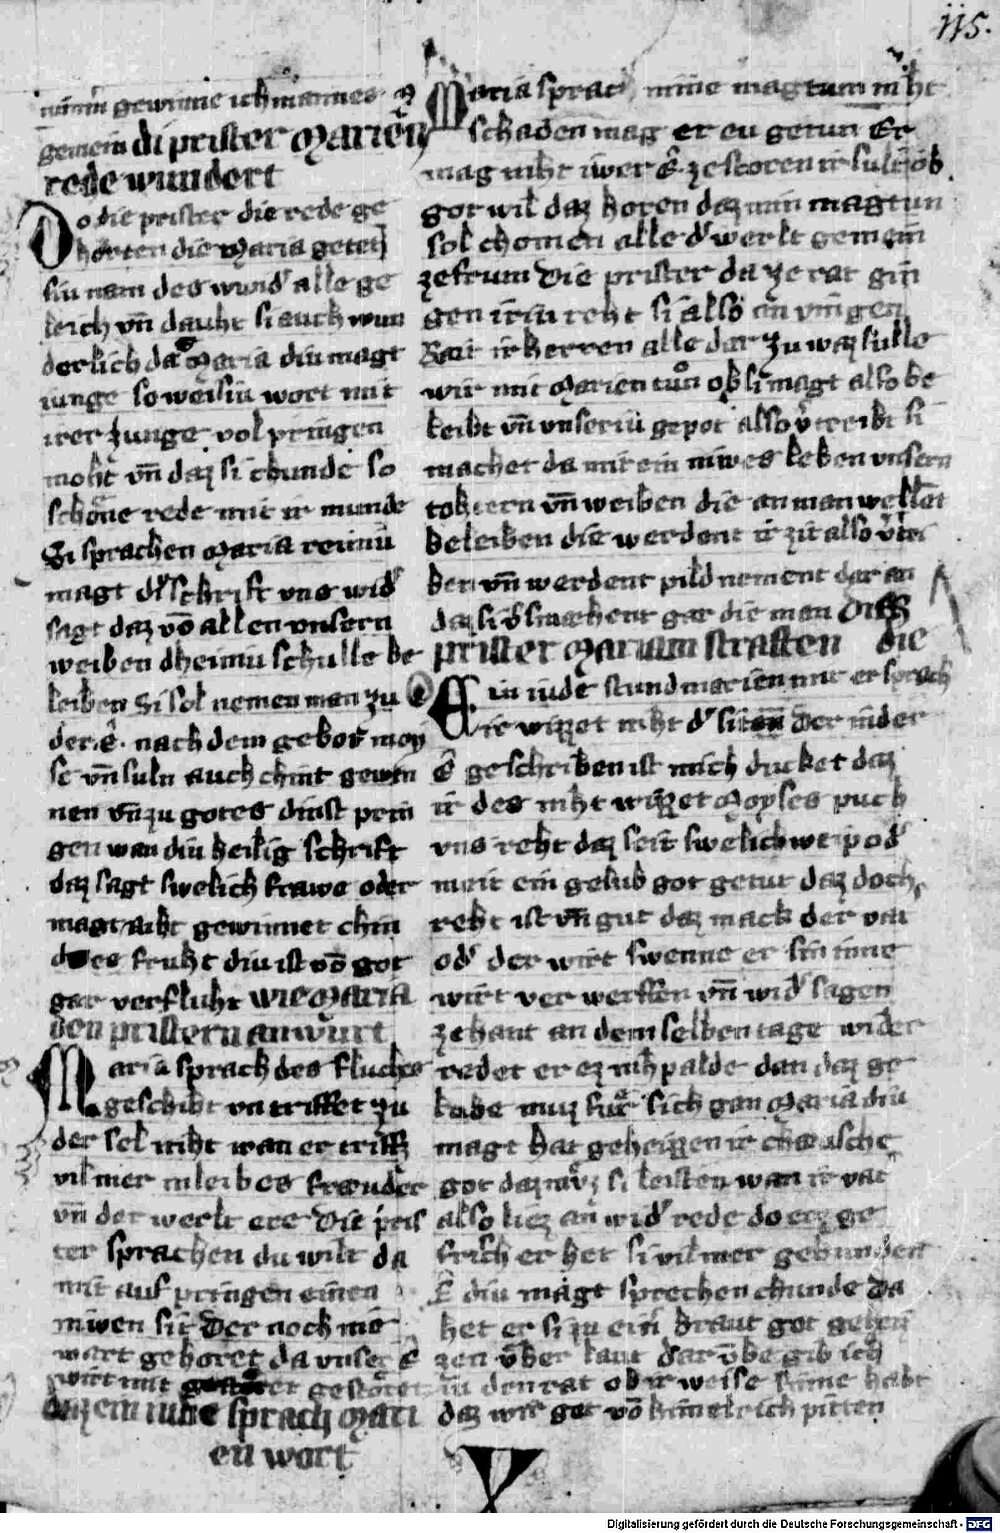 115.
nimm gewinne ich mannes
gemein di prister Marien
rede wundert
Do die prister die rede ge
horten die Maria getet
siu nam des wundˢ alle ge
leich vn̄ dauht si auch wun
derlich da Maria diu magt
iunge so weisiu wort mit
irer zunge vol pringen
moht vn̄ daz si chunde so
schone rede mit ir munde
Si sprachen Maria reiniu
magt dˢ schrift uns widˢ
sagt daz vō allen unsern
weiben dheiniu schulle be
leiben Si sol nemen man zu
der .ê. nach dem gebot moy
se vn̄ suln auch chint gewin
nen vn̄ zu gotes dinst prin
gen wan diu heilig schrift
daz sagt swelich frawe oder
magt niht gewinnet chin
des fruht diu ist vō got
gar verfluht wie Maria
den pristern antwurt
Maria sprach des fluches
geschiht vn triffet zu
der sel niht wan er triffz
vil mer in leibes freuden
vn̄ der werlt ere Die pris
ter sprachen du wilt da
mit auf pringen einen
niwen sit Der noch nie
wart gehoret da unser ê
wirt mit gestoret
Daz ein iude sprach Mari
en wort
Maria sprach mine magtum niht
schaden mag er eu getun Er
mag niht iwer ê. zestoren ir sult ob
got wil daz horen daz min magtun
sol chomen alle dˢ werlt gemein
zefrum Die prister da ze rat gin
gen in reht si also an vin gen
Rat ir herren alle dar zu waz sulle
wir mit Marien tun ob si magt also be
leibt vn̄ unseriu gepot also vˢtreibt si
machet da mit ein niwes leben unsern
tohtern vn̄ weiben die an man wellet
beleiben die werdent ir zit also vˢtri
ben vn̄ werdent pild nement dar an
daz si vˢsmehent gar die man Diss
prister Mariam straften die
Ein iude stund marien mit er sprach
ir wizzet niht dˢ siten Der in der
ê geschriben ist mich dunket daz
ir des niht wizzet Moyses puch
uns reht daz seit swelich weip odˢ
mait ein gelub got getut daz doch
reht ist vn̄ gut daz mack der vat
odˢ der wirt swenne er sin inne
wirt ver werffen vn̄ widˢ sagen
zehant an dem selben tage wider
redet er ez niht palde dan daz ge
lube muz fur sich gan Maria diu
magt hat geheizzen ir cheusche
got daz muz si leisten wan ir vat
also liez an widˢ rede do er ez ge
frisch er het si vil mer gebunden
ê diu magt sprechen chunde da
het er si zu einˢ braut got gehei
zen vber laut dar vbe gib ich
iu den rat ob ir weise sinne habt
daz wir got vō himelreich pitten
Digitalisierung gefördert durch die Deutsche Forschungsgemeinschaft - DFG